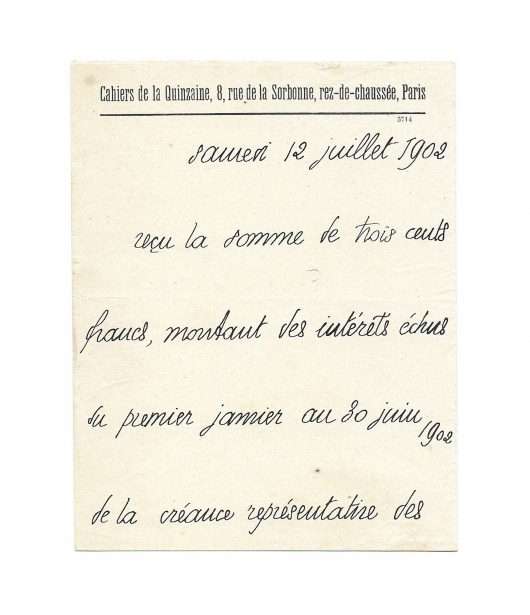 Cahiers de la Quinzaine, 8, rue de la Sorbonne, rez-de-chaussée, Paris
3714
samedi 12 juillet 1902
reçu la somme de trois cents
francs, montant des intérêts échus
du premier janvier au 30 juin 1902
de la créance représentative des